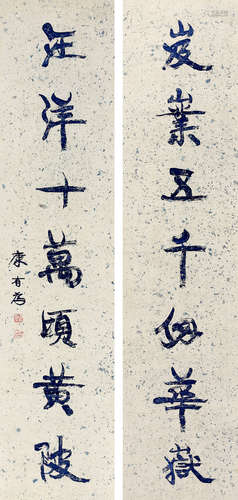 岌嶪五千仞華嶽
汪洋十萬頃黃陂
康有為